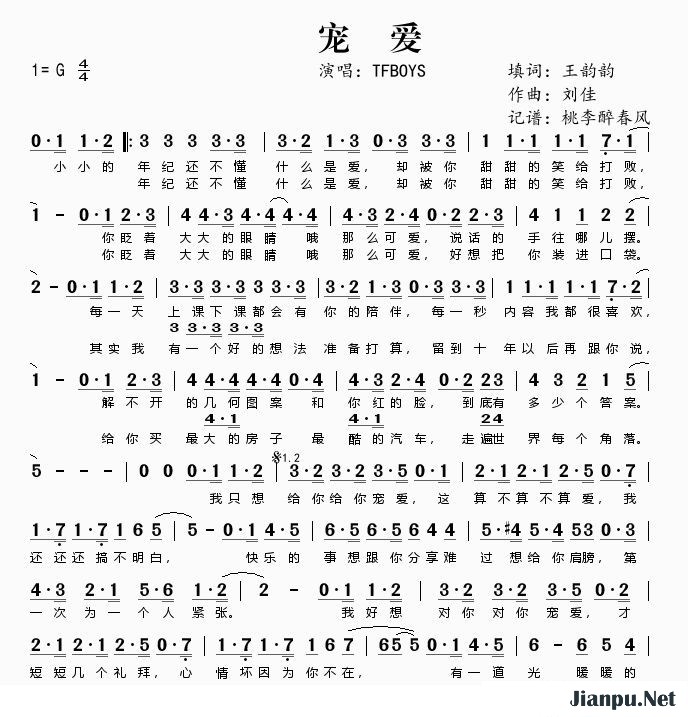 宠 爱
1=G 4/4
演唱：TFBOYS
填词：王韵韵
作曲：刘佳
记谱：桃李醉春风
0·1 1·2 |: 3 3 3 3·3 | 3·2 0·1 3·3 | 1 1·1 1·1 7·1 |
小小的 年纪还不懂 什么是爱，却被你 甜甜的笑给打败，
年纪还不懂 什么是爱，却被你 甜甜的笑给打败，
1 - 0·1 2·3 | 4·4 3·4 4·4 | 3·4 2·4 0·2 2·3 | 4 1 2 2 |
你眨着 大大的眼睛 哦那么可爱，说话的 手往哪儿摆。
你眨着 大大的眼睛 哦那么可爱，好想把 你装进口袋。
2 - 0·1 1·2 | 3·3 3·3 3·3 | 3·2 0·1 0·3 3·3 | 1 1·1 1·1 7·2 |
每一天 上课下课都会有 你的陪伴，每一秒 内容我都很喜欢，
3 3·3 3·3
其实我 有一个好的想法 准备打算，留到十 年以后再跟你说，
1 - 0·1 2·3 | 4·4 4·4 4·4 | 4·3 2·4 0·2 23 | 4 3 2 1 5 |
解不开 的几何图案 和你红的脸，到底有 多少个答案。
4·1 4·1 24
给你买 最大的房子 最酷的汽车，走遍世 界每个角落。
𝄋1.2
5 - - - | 0 0 0·1 1·2 | 3·2 0·1 3·3 0·5 | 2·1 2·1 2·5 0·7 |
我只想 给你给你宠爱，这 算不算不算爱，我
1·7 1·7 1 6 5 | 5 - 0·1 4·5 | 6·5 6·5 6·6 4·4 | 5·#4 5·4 5 3 0·3 |
还还还搞不明白， 快乐的 事想跟你分享难 过想给你肩膀，第
4·3 2·1 5·6 1·2 | 2 - 0·1 1·2 | 3·2 0·1 3·3 0·5 |
一次为一个人紧张。 我好想 对你对你宠爱，才
2·1 2·1 2·5 0·7 | 1·7 1·7 1 6 7 | 655 0·1 4·5 | 6 - 6 5 4 |
短短几个礼拜，心 情坏因为你不在， 有一道 光 暖暖的
Jianpu.Net